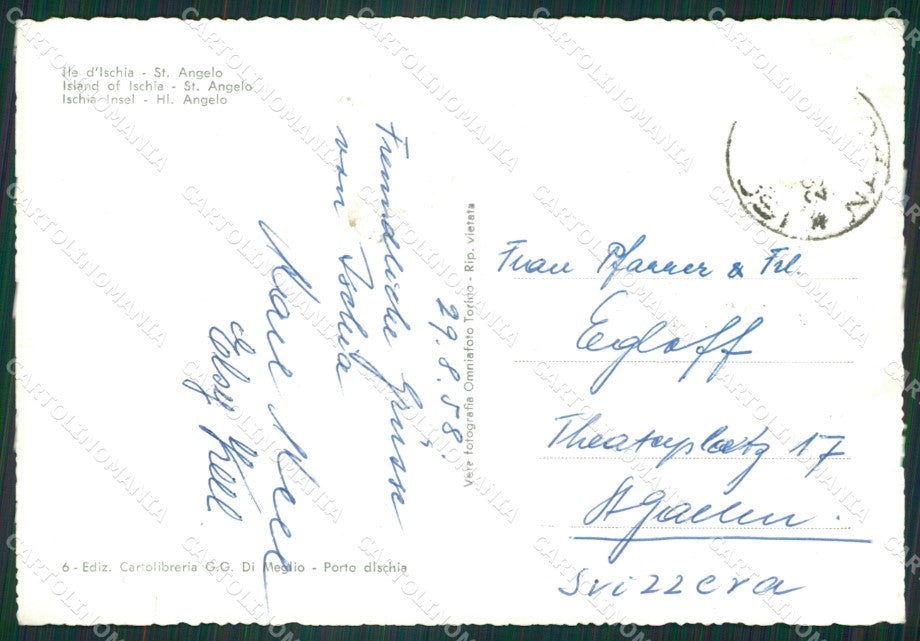 Ile d'Ischia - St. Angelo
Island of Ischia - St. Angelo
Ischia-Insel - Hl. Angelo
29.8.58.
Freundliche Grüsse
von Ischia
6 - Ediz. Cartolibreria G.G. Di Meglio - Porto dIschia
Vera fotografia Omniafoto Torino - Rip. vietata
NAPOLI
Frau Pfanner & Frl.
Egloff
Theaterplatz 17
St Gallen.
Svizzera
CARTOLINOMANIA